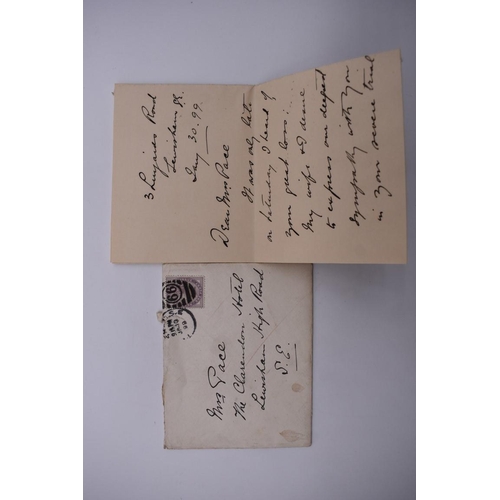 3 Road
Lewisham S.E.
Jany 30. 99.
Dear Mrs Pace
It was only late
on Saturday I heard of
your great loss:
My wife & I desire
to express our deepest
sympathy with you
in your severe trial
Mrs Pace
The Clarendon Hotel
Lewisham High Road
S.E.